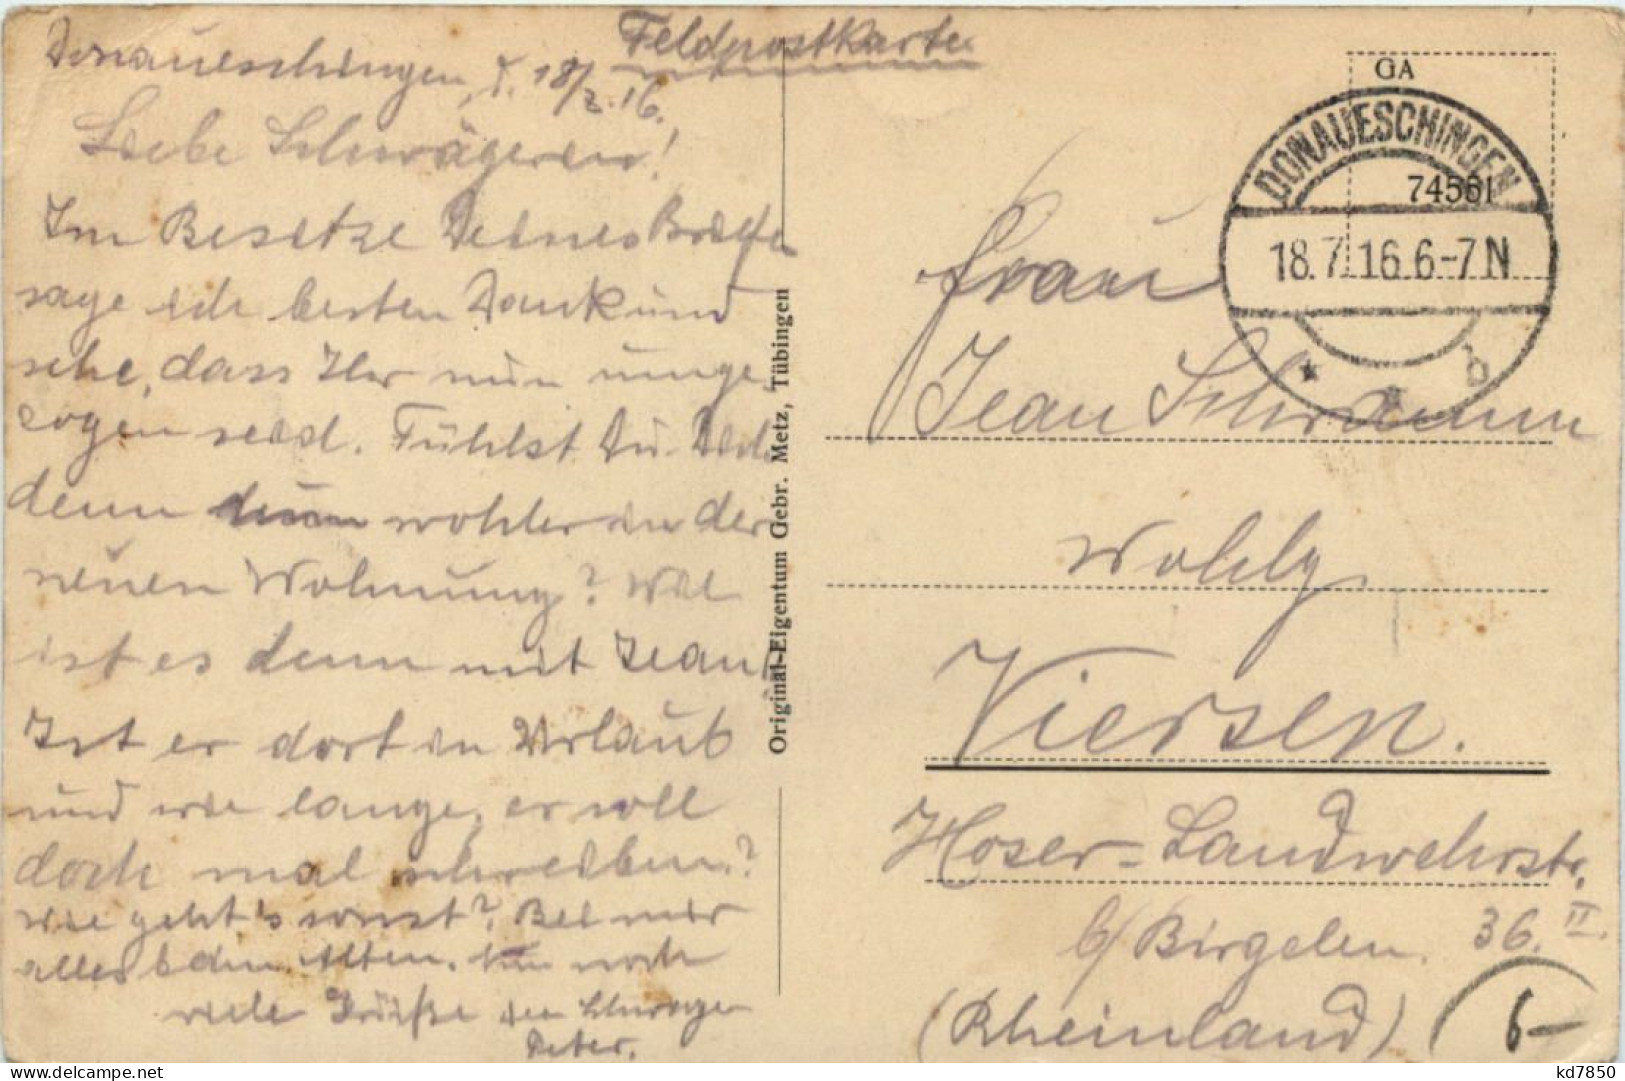 Feldpostkarte
Donaueschingen, d. 18/7.16.
Liebe Schwägerin!
Im Besitze Deines Briefes
sage ich besten Dank und
sehe, dass Ihr nun umge-
zogen seid. Fühlst Du Dich
denn wohler in der
neuen Wohnung? Wie
ist es denn mit Jean?
Ist er dort in Urlaub
und wie lange, er soll
doch mal schreiben?
wie geht's sonst? Bei mir
alles b. dem Alten. Nun noch
viele Grüße Dein Schwager
Peter.
Original-Eigentum Gebr. Metz, Tübingen
GA
74561
DONAUESCHINGEN
18.7.16 6-7N
* * b
Frau
Jean Schramm
Wohlg.
Viersen.
Hoser-Landwehrstr.
b/Birgelen. 36. II.
(Rheinland)
6-
kd7850